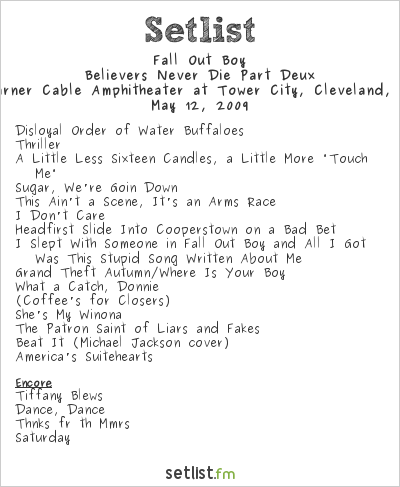 Setlist
Fall Out Boy
Believers Never Die Part Deux
arner Cable Amphitheater at Tower City, Cleveland,
May 12, 2009
Disloyal Order of Water Buffaloes
Thriller
A Little Less Sixteen Candles, a Little More "Touch
Me"
Sugar, We're Goin Down
This Ain't a Scene, It's an Arms Race
I Don't Care
Headfirst Slide Into Cooperstown on a Bad Bet
I Slept With Someone in Fall Out Boy and All I Got
Was This Stupid Song Written About Me
Grand Theft Autumn/Where Is Your Boy
What a Catch, Donnie
(Coffee's for Closers)
She's My Winona
The Patron Saint of Liars and Fakes
Beat It (Michael Jackson cover)
America's Suitehearts
Encore
Tiffany Blews
Dance, Dance
Thnks fr th Mmrs
Saturday
setlist.fm